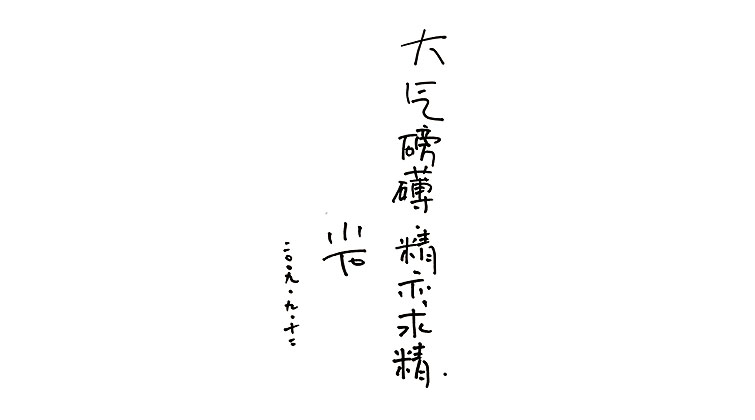 大气磅礴.精亦求精.
二〇〇九.九.十二